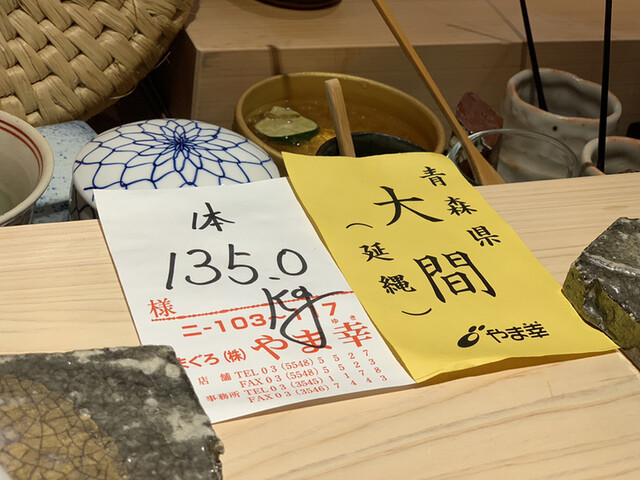 1本
135.0
kg
様
ニ-103-
まぐろ(株) やま幸
ゆき
店舗 TEL 03 (5548) 5527
FAX 03 (5548) 5523
事務所 TEL 03 (3545) 1178
FAX 03 (3546) 7443
青森県
大間
(延縄)
やま幸